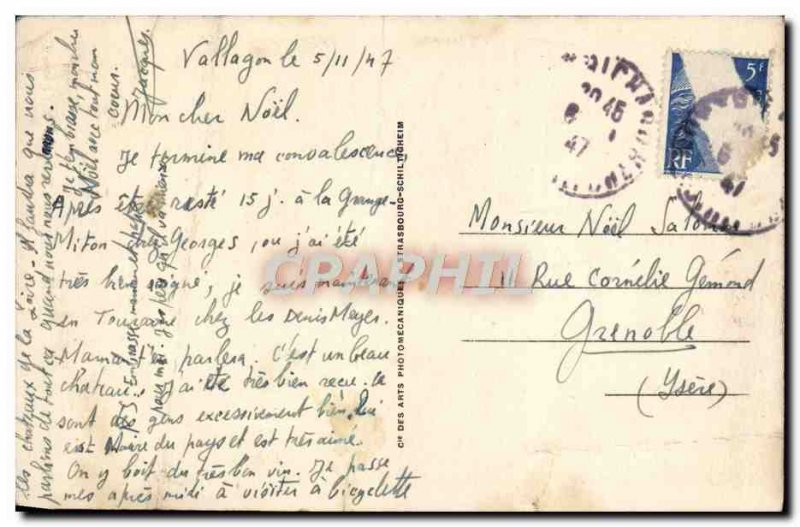 Vallagon le 5/11/47
Mon cher Noël.
Je termine ma convalescence.
Après être resté 15 j. à la Grange-
Miton chez Georges, ou j'ai été
très bien soigné, je suis maintenant
en Touraine chez les Denis Mayer.
Maman t'en parlera. C'est un beau
chateau. J'ai été très bien reçu. Ce
sont des gens excessivement bien. Lui
est Maire du pays et est très aimé.
On y boit du très bon vin. Je passe
mes après midi à visiter à bicyclette
les châteaux de la Loire. Il faudra que nous
parlions de tout ça quand nous nous reverrons.
Je t'embrasse, mon cher
Noël avec tout mon
coeur.
Jacques
PS Embrasse maman et
pour moi.
CIE DES ARTS PHOTOMÉCANIQUES STRASBOURG-SCHILTIGHEIM
5F
RF
47
47
Monsieur Noël
11 Rue Cornélie Gémond
Grenoble
(Isère)
CPAPHIL